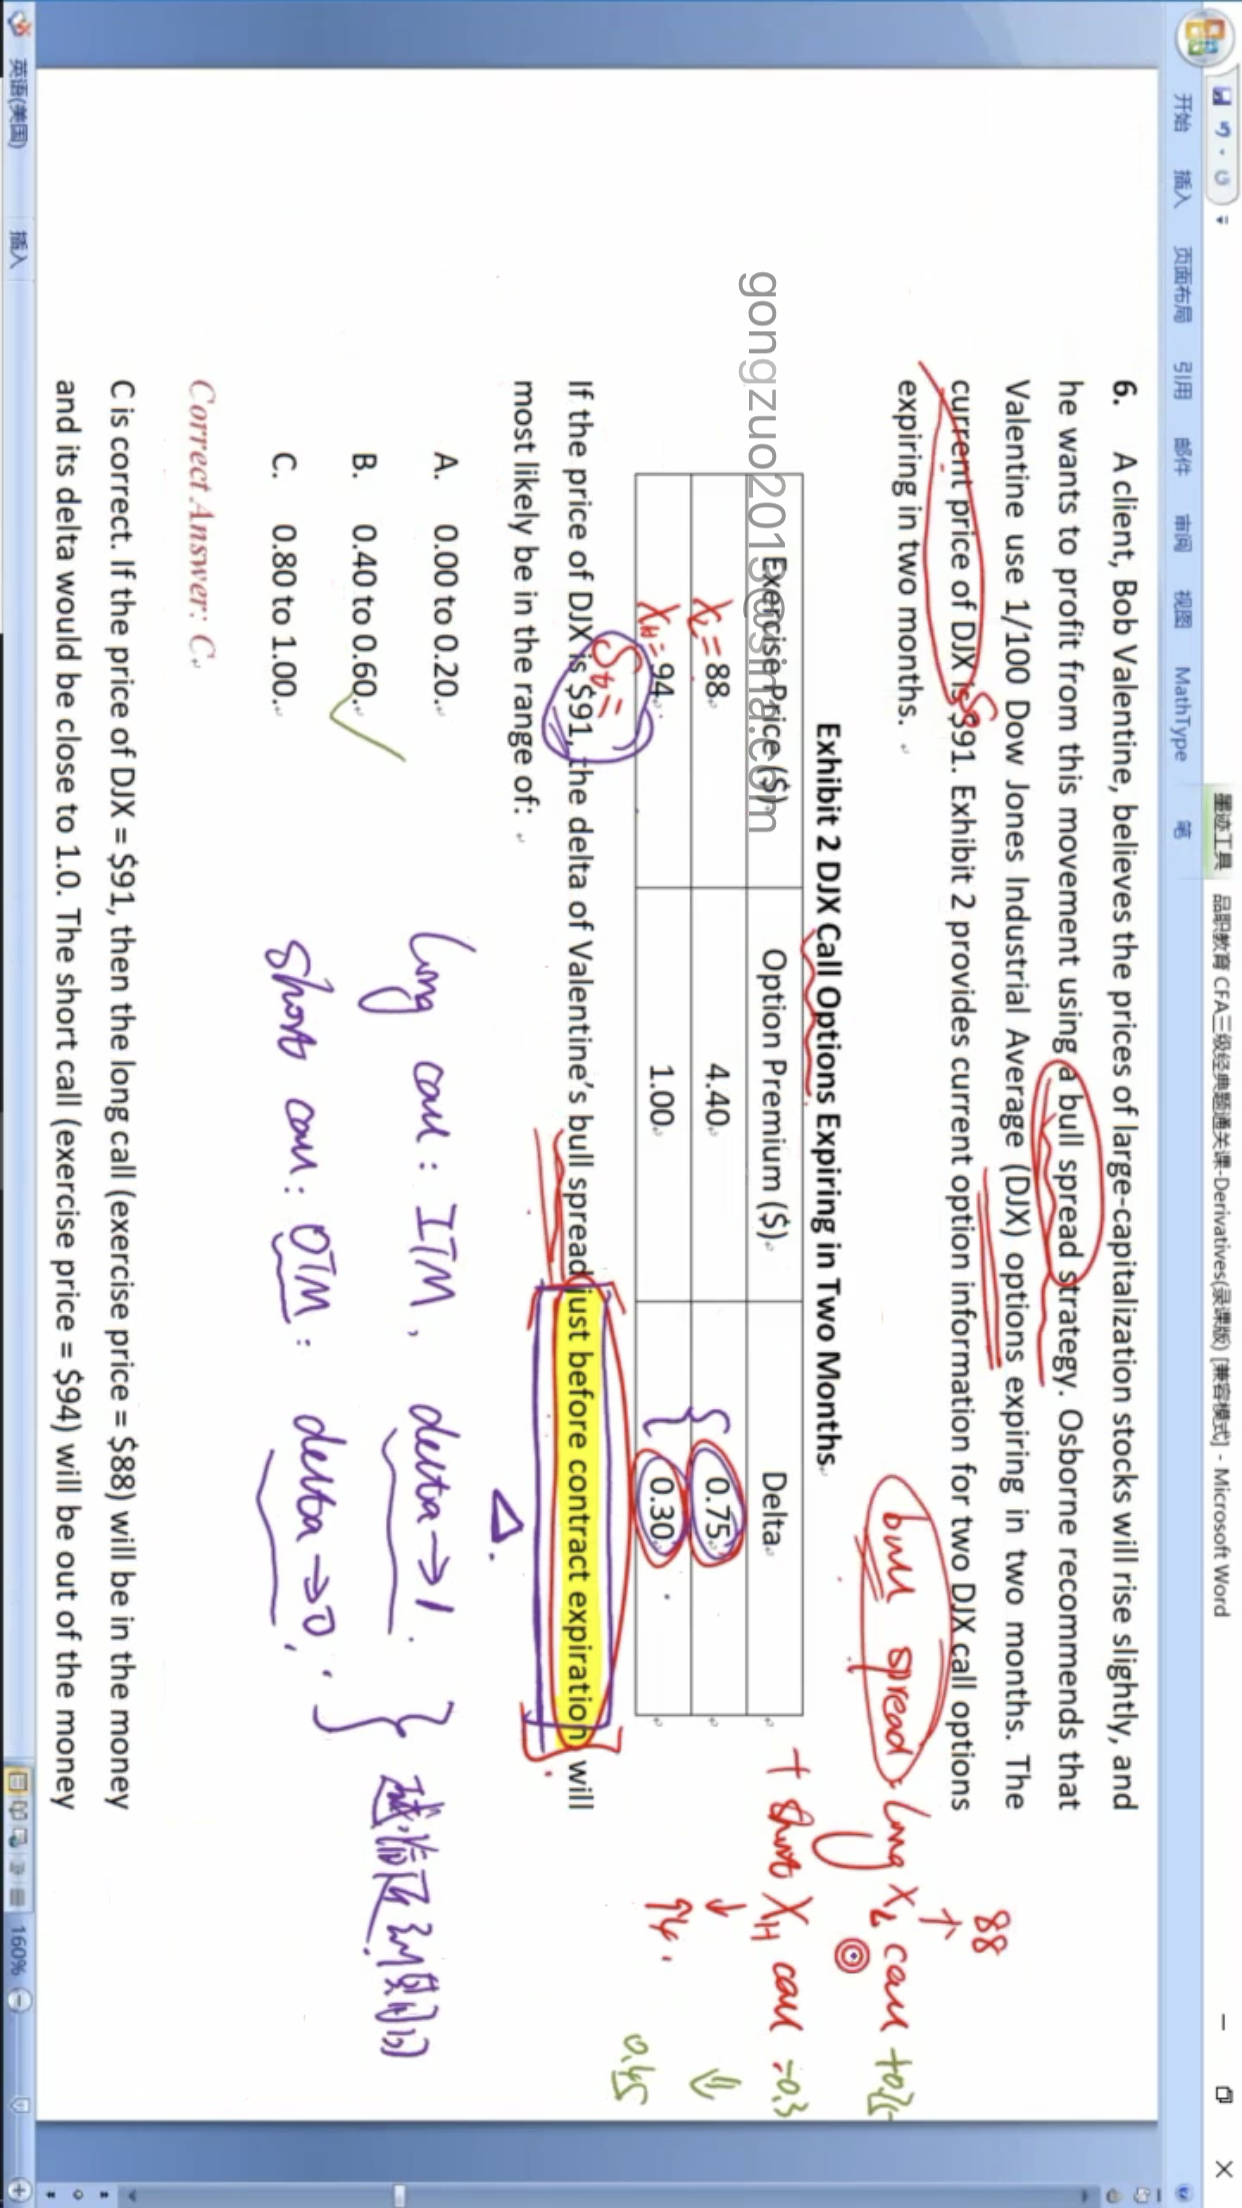 墨迹工具 品职教育 CFA三级经典题通关课-Derivatives(录课版) [兼容模式] - Microsoft Word
开始 插入 页面布局 引用 邮件 审阅 视图 MathType 笔
6. A client, Bob Valentine, believes the prices of large-capitalization stocks will rise slightly, and
he wants to profit from this movement using a bull spread strategy. Osborne recommends that
Valentine use 1/100 Dow Jones Industrial Average (DJX) options expiring in two months. The
current price of DJX is $91. Exhibit 2 provides current option information for two DJX call options
expiring in two months.
88
bull spread: long XL call +0.75
+ short XH call -0.3
94.
0.45
Exhibit 2 DJX Call Options Expiring in Two Months
Exercise Price ($) Option Premium ($) Delta
XL= 88 4.40 0.75
XH= 94 1.00 0.30
gongzuo2013@sina.com
If the price of DJX is $91, the delta of Valentine's bull spread just before contract expiration will
most likely be in the range of:
Δ.
A. 0.00 to 0.20.
B. 0.40 to 0.60.
C. 0.80 to 1.00.
long call: ITM, delta→1.
short call: OTM: delta→0.
Correct Answer: C
C is correct. If the price of DJX = $91, then the long call (exercise price = $88) will be in the money
and its delta would be close to 1.0. The short call (exercise price = $94) will be out of the money
英语(美国) 插入 160%